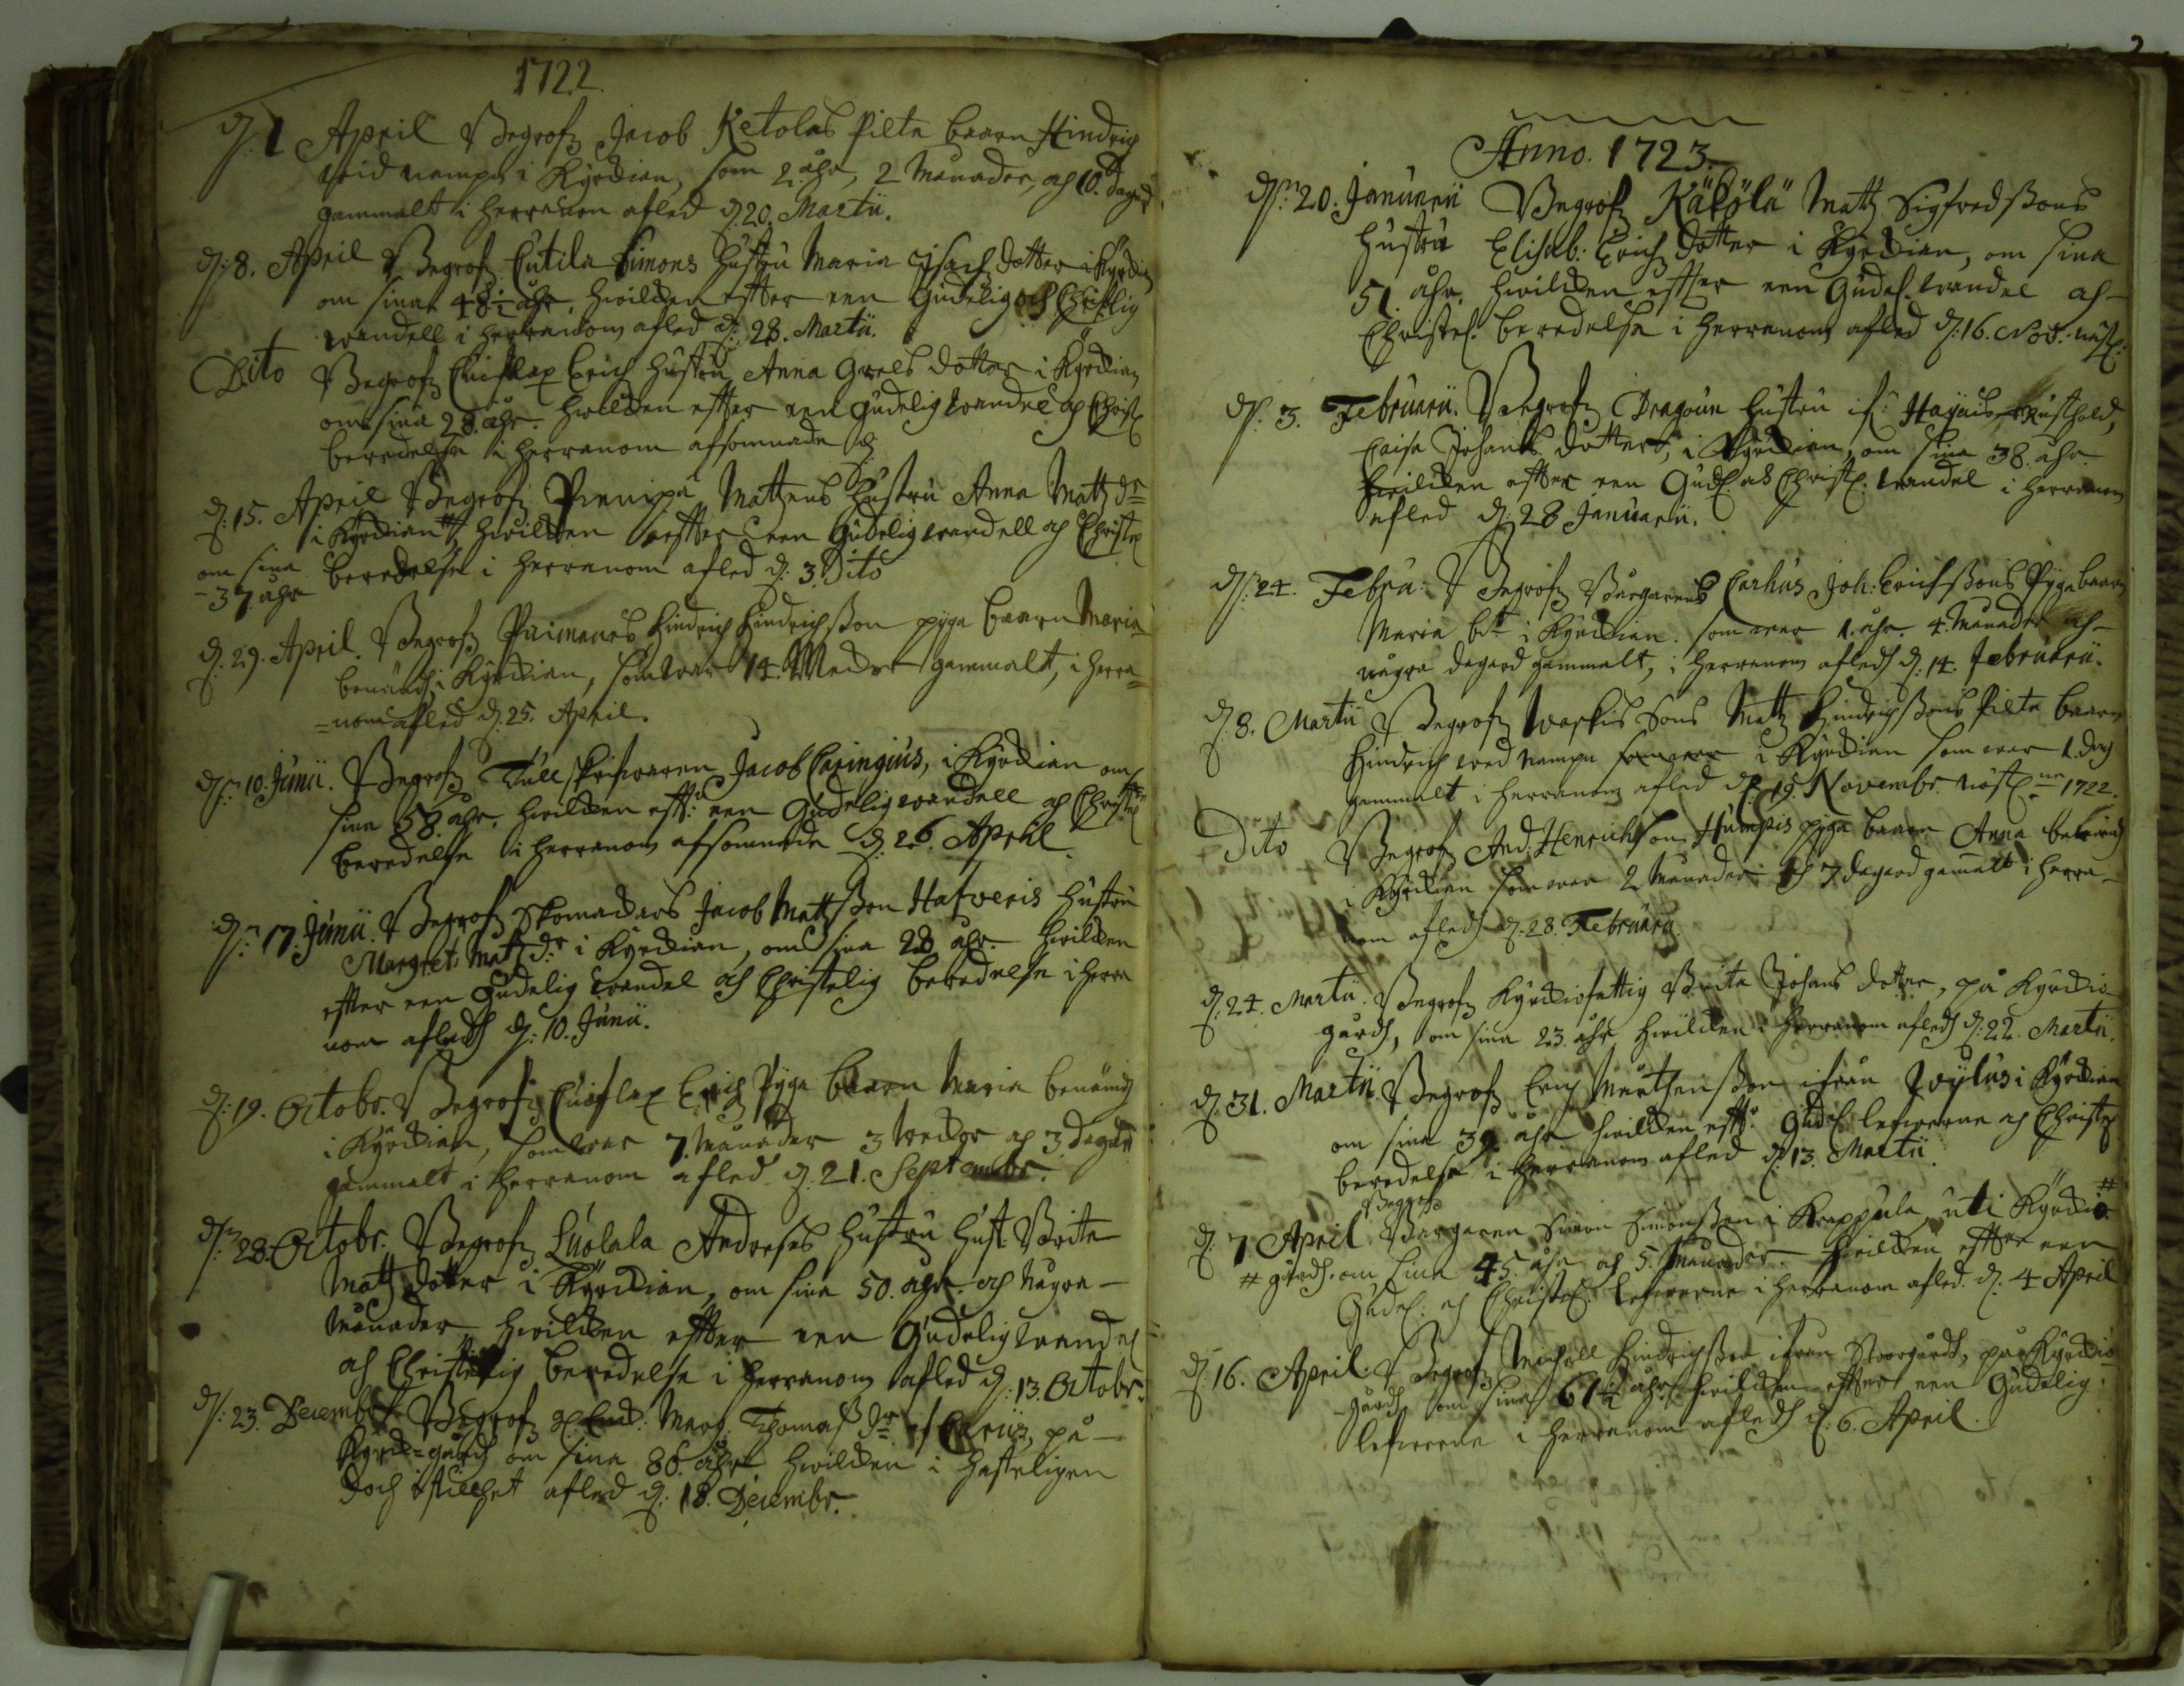 1722.
d. 1 April Begrofz Jacob Ketolas Pilte baarn Hindrich
wid nampn i Kyrckian, som 2 åhr, 2 Månader, och 10. dagar
gammalt i herranom afled d. 20. Martii.
d: 8. April Begrofz Eutila Simons Hustru Maria Isachs dotter i Kyrckian
om sina 48½ åhr, hwilcken effter een Gudelig och Christlig
wandell i herranom afled d: 28. Martii.
Dito Begrofz Erich Hustru Anna Grels dotter i Kyrckian
om sina 28. åhr. hwilcken effter een gudelig wandel och Christel
beredelse i herranom afsomnade d.
d: 15. April Begrofz Mattzens Hustru Anna Mattz dr
i Kyrckian hwilcken effter een Gudelig wandell och Christel
om sina beredelse i herranom afled d: 3. Dito
37 åhr
d: 29. April. Begrofz Paimanes Hindrich Hindrichsson pyga baarn Maria
benämd i Kyrckian, som war 14. Weckr gammalt, i herra-
=nom afled d. 25. April.
dn: 10. Junii. Begrofz Tullskrifwaren Jacob Caringius, i Kyrckian om
sina 58. åhr. hwilcken efft: een Gudelig wandell och Christel
beredelse i herranom afsomnade d. 26. Aprill.
dn: 17. Junii. Begrofz Skomackars Jacob Mattsson Hafveris Hustru
Margret: Matz dr i Kyrckian, om sina 28 åhr. hwilcken
effter een Gudelig wandel och Christelig beredelse i herra
nom afledh d: 10. Junii.
d: 19. Octobr. Begrofz Erich Pyga baarn Maria benämd
i Kyrckian, som war 7. Månader 3 weckor och 3 dagar
gammalt i herranom afled d. 21. Septembr.
dn: 28. Octobr. Begrofz Luolala Andreses Hustru Hust. Brita
Matz dotter i Kyrckian, om sina 50. åhr. och Någre
Månader hwilcken effter een Gudelig wandel
och Christelig beredelse i herranom afled d: 13. Octobr.
d: 23. Decembr Begrofz Marg. Thomas Dr på
Kyrck=gård om sina 86. åhr hwilcken i hasteligen
doch i stillhet afled d: 18. Decembr.
Anno. 1723.
dn: 20. Januarii Begrofz Käkölä Matz Sigfredssons
Hustru Elisab: Erichs dotter i Kyrckian, om sina
51. åhr. hwilcken effter een Gudel. wandel och
Christel. beredelse i herranom afled d: 16. Nov.
d: 3. Februarii. Begrofz Dragoun Hustru if: Rusthold,
Caisa Johans dotter, i Kyrckian, om sina 38. åhr.
hwilcken effter een Gudl och Christl. wandel i herranom
afled d: 28 Januarii.
d: 24. Febru: Begrofz Borgarens Carhus Joh: Erichssons Pyga baarn
Maria bd i Kyrckian. som war 1. åhr. 4. Månader och
några dagard gammalt, i herranom afledh d: 14. Februarii.
d. 8. Martii Begrofz Sons Matz Hindrichssons Pilte baarn
Hindrich wed nampn i Kyrckian som war 1. dag
gammalt i herranom afled d: 19. Novembr. 1722.
Dito Begrofz And: Henrichson Humpis pyga baarn Anna benämd
i Kyrckian som war 2 Månader och 7 dagard gamalt i herra-
nom afledh d. 28. Februarii
d: 24. Martii. Begrofz Kyrckiofattig Brita Johans dotter, på Kyrckio
gårdh, om sina 23. åhr hwilcken i herranom afledh d: 22. Martii.
d. 31. Martii. Begrofz Erich Mårtensson ifrån i Kyrckian
om sina 39. åhr hwilcken efft: Gudel. lefwerne och Christel
beredelse i herranom afled d: 13. Martii.
d: 7. April Borgaren Simon Simonsson i Krappula uti Kyrckio #
# gårdh. om sina 45. åhr och 5. Månader. hwilcken effter een
Gudel: och Christel. lefwerne i herranom afled d: 4 April
d: 16. April. Begrofz Michell Hindrichsson ifrån Storegårdh, på Kyrckio
-gårdh om sina 61½ åhr hwilcken effter een Gudelig
lefwerne i herranom afledh d. 6. April.